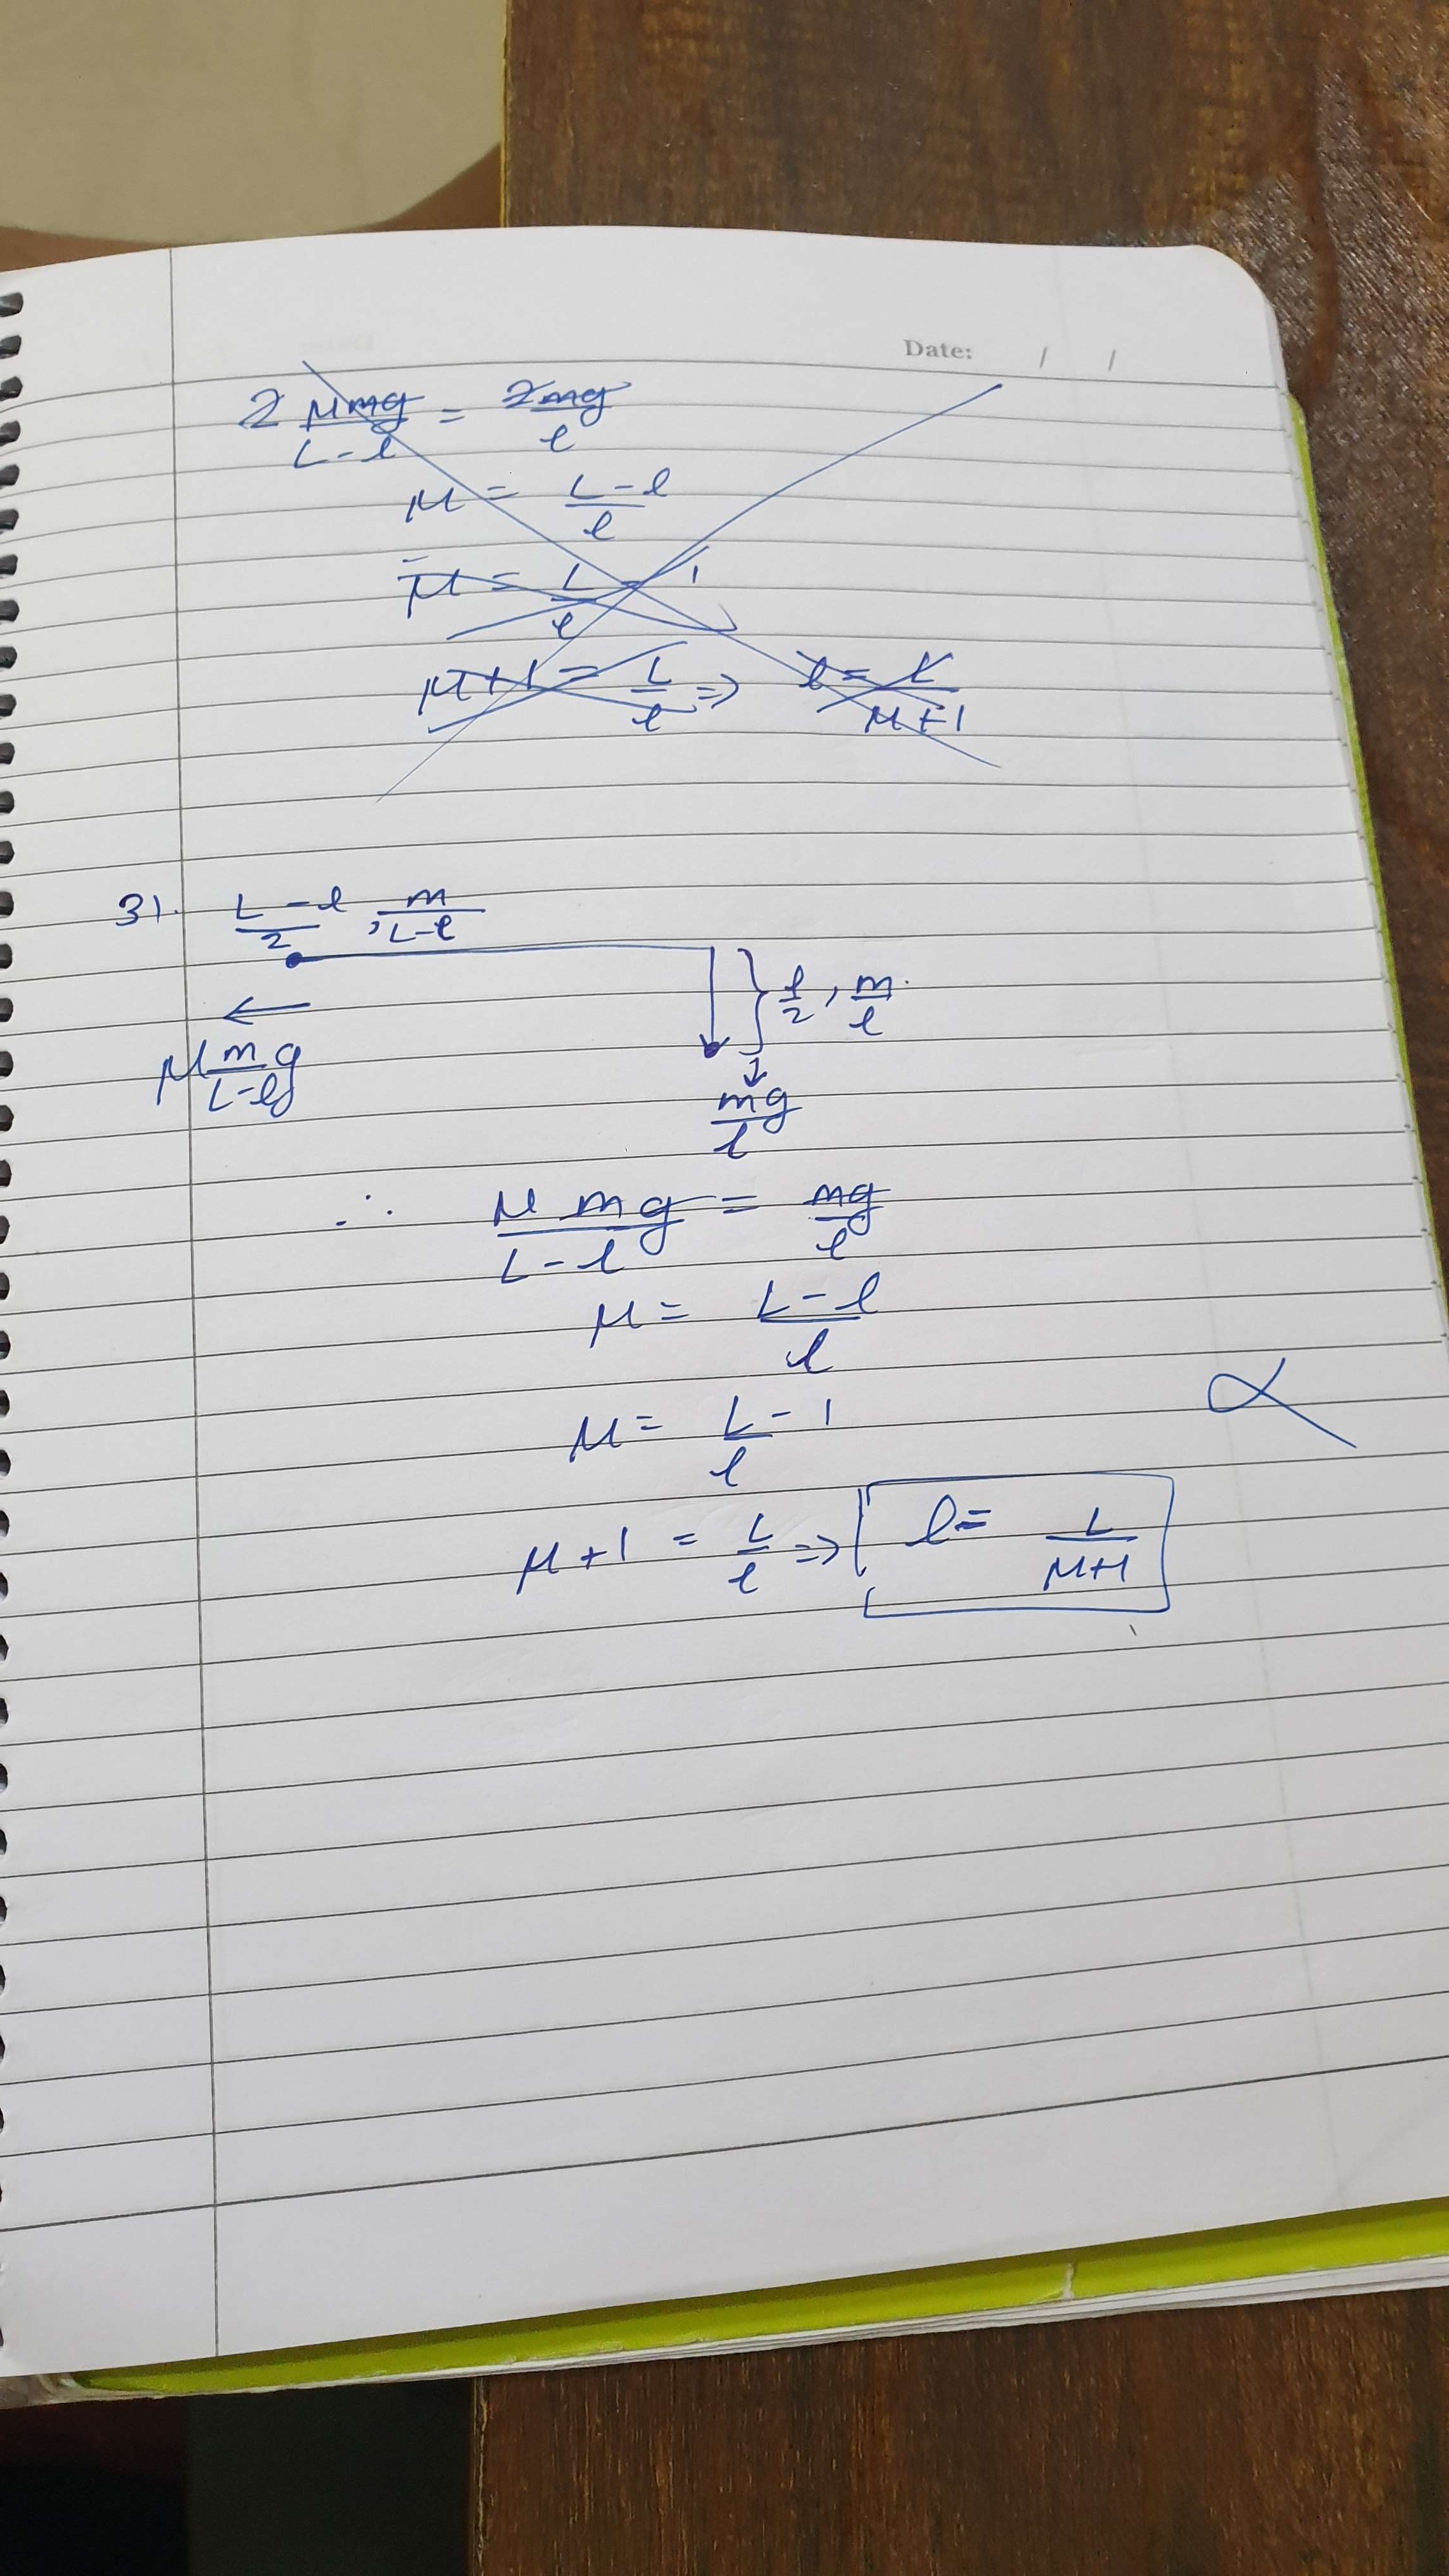 Date: / /
2 μmg/(L-l) = 2mg/l
μ = (L-l)/l
μ = L/l - 1
μ+1 = L/l ⇒ l = L/(μ+1)
31. (L-l)/2, m/(L-l)
l/2, m/l
μ m/(L-l) g
mg/l
∴ μ mg/(L-l) = mg/l
μ = (L-l)/l
μ = L/l - 1
μ+1 = L/l ⇒ l = L/(μ+1)